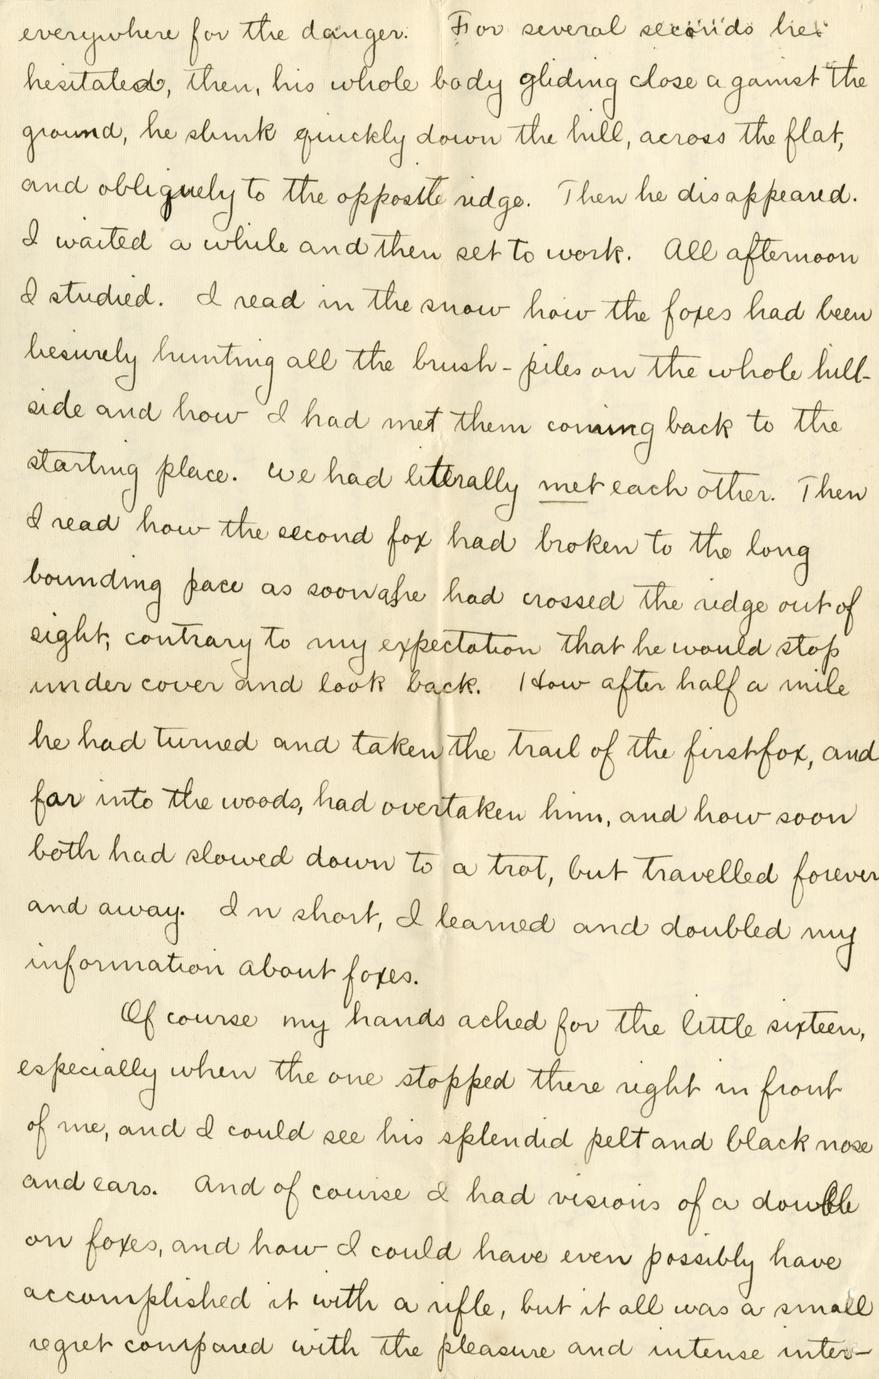 everywhere for the danger. For several seconds he
hesitated, then, his whole body gliding close against the
ground, he slunk quickly down the hill, across the flat,
and obliquely to the opposite ridge. Then he disappeared.
I waited a while and then set to work. All afternoon
I studied. I read in the snow how the foxes had been
liesurely hunting all the brush-piles on the whole hill-
side and how I had met them coming back to the
starting place. We had literally met each other. Then
I read how the second fox had broken to the long
bounding pace as soon as he had crossed the ridge out of
sight, contrary to my expectation that he would stop
under cover and look back. How after half a mile
he had turned and taken the trail of the first fox, and
far into the woods, had overtaken him, and how soon
both had slowed down to a trot, but travelled forever
and away. In short, I learned and doubled my
information about foxes.
Of course my hands ached for the little sixteen,
especially when the one stopped there right in front
of me, and I could see his splendid pelt and black nose
and ears. And of course I had visions of a double
on foxes, and how I could have even possibly have
accomplished it with a rifle, but it all was a small
regret compared with the pleasure and intense inter-